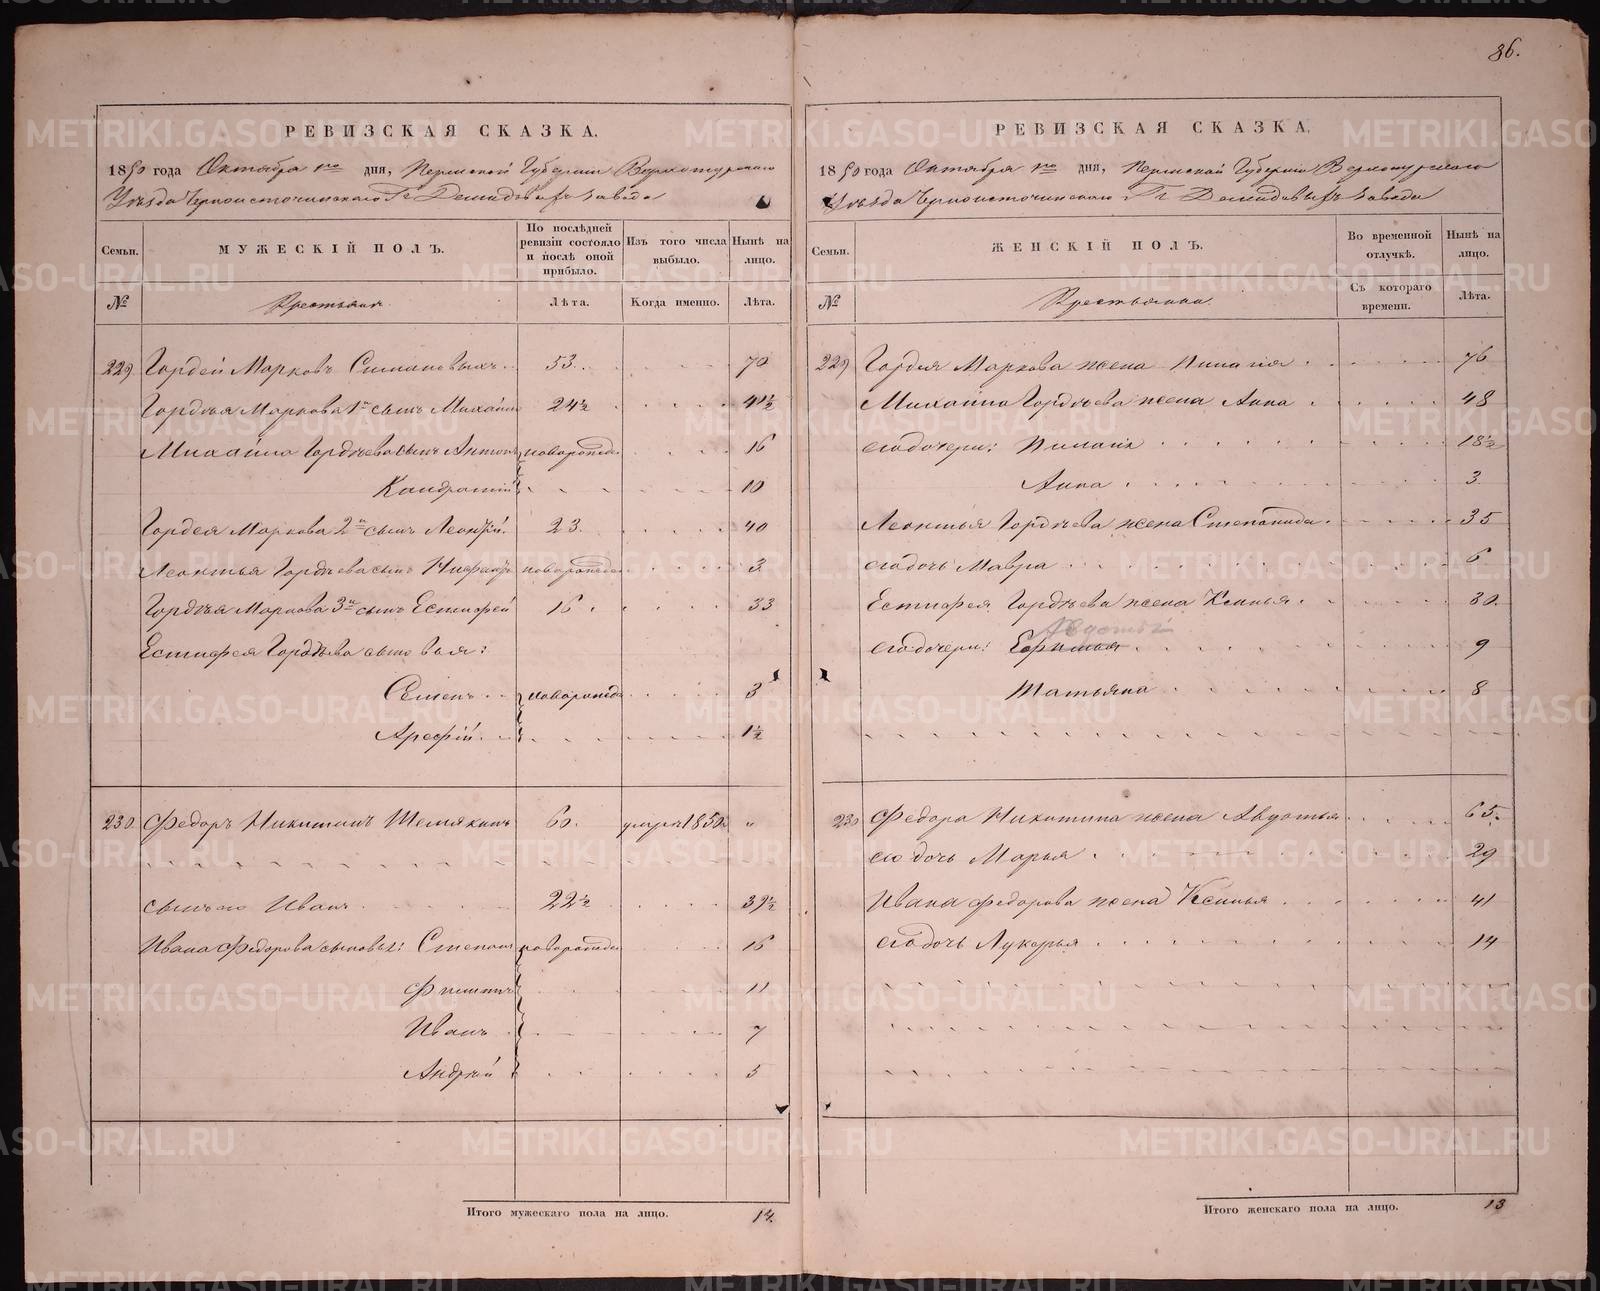 86.
РЕВИЗСКАЯ СКАЗКА.
1850 года Октября 1го дня, Пермской Губернии Верхотурскаго
Уѣзда Черноисточинскаго Гг Демидовыхъ завода
Семьи.
МУЖЕСКІЙ ПОЛЪ.
По послѣдней ревизіи состояло и послѣ оной прибыло.
Изъ того числа выбыло.
Нынѣ на лицо.
№
Крестьяне.
Лѣта.
Когда именно.
Лѣта.
229 Гордей Марковъ 53. 70
Гордѣя Маркова 1й сынъ Михайло 24½ 41½
Михайло Гордѣева сынъ Антонъ новорожде 16
Кондратій 10
Гордея Маркова 2й сынъ Леонтій. 23. 40
Леонтья Гордѣева сынъ новорожден 3
Гордѣя Маркова 3й сынъ Естифей 16. 33
Естифея Гордѣева сыновья:
Семенъ новорожд 3
Арефій. 1½
230 Федоръ Никитинъ Шемякинъ 60. умеръ 1850. "
сынъ его Иванъ 22½ 39½
Ивана Федорова сыновья: Степанъ новорожден 16
Филипъ 11
Иванъ 7
Андрей 5
Итого мужескаго пола на лицо. 14.
РЕВИЗСКАЯ СКАЗКА.
1850 года Октября 1го дня, Пермской Губерніи Верхотурскаго
Уѣзда Черноисточинскаго Гг Демидовыхъ завода
Семьи.
ЖЕНСКІЙ ПОЛЪ.
Во временной отлучкѣ.
Нынѣ на лицо.
№
Крестьянки.
Съ котораго времени.
Лѣта.
229 Гордея Маркова жена 76
Михайло Гордѣева жена Анна 48
его дочери: 18½
Анна 3
Леонтья Гордѣева жена Степанида. 35
его дочь Мавра 6
Естифея Гордѣева жена Ксинья. 30.
Авдотья
его дочери: 9
Татьяна 8
230 Федора Никитина жена Авдотья 65.
его дочь Марья 29
Ивана Федорова жена Ксинья 41
его дочь Лукерья 14
Итого женскаго пола на лицо. 13
METRIKI.GASO-URAL.RU